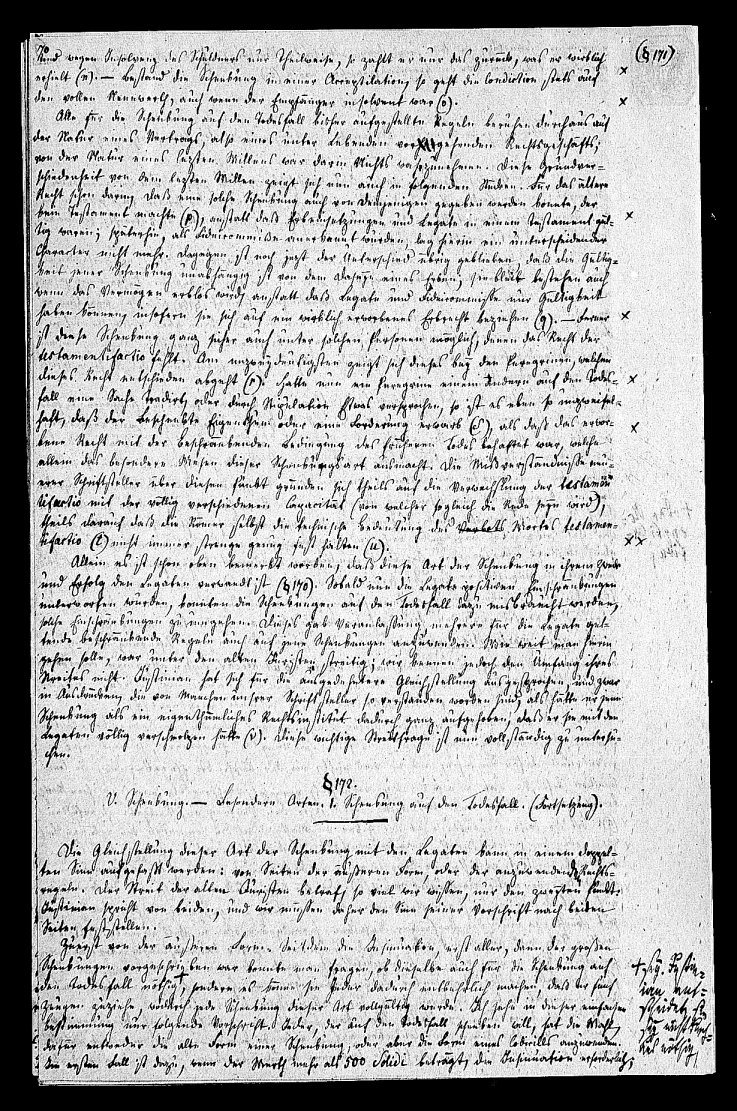 70
und wegen Insolvenz des Schuldners nur theilweise, so zahlt er nur das zurück, was er wirklich
erhielt (n). — Bestand die Schenkung in einer Acceptilation, so geht die Condiction stets auf
den vollen Nennwerth, auch wenn der Empfänger insolvent war (o).
(§ 171)
Alle für die Schenkung auf den Todesfall bisher aufgestellten Regeln beruhen durchaus auf
der Natur eines Vertrags, also eines unter Lebenden vorgehenden Rechtsgeschäfts;
von der Natur eines letzten Willens war darin Nichts wahrzunehmen. Diese Grundver-
schiedenheit von dem letzten Willen zeigt sich nun auch in folgenden Stücken. Für das ältere
Recht schon darin, daß eine solche Schenkung auch von Demjenigen gegeben werden konnte, der
kein Testament machte (p), anstatt daß Erbeinsetzungen und Legate in einem Testament gül-
tig waren; späterhin, als Fideicommisse anerkannt wurden, lag hierin ein unterscheidender
Character nicht mehr. Dagegen ist noch jetzt der Unterschied übrig geblieben, daß die Gültig-
keit jener Schenkung unabhängig ist von dem Daseyn eines Erben; sie bleibt bestehen auch
wenn das Vermögen erblos wird, anstatt daß Legate und Fideicommisse nur Gültigkeit
haben können, insofern sie sich auf ein wirklich erworbenes Erbrecht beziehen (q). — Ferner
ist diese Schenkung ganz sicher auch unter solchen Personen möglich, denen das Recht der
testamentifactio fehlt. Am unzweydeutigsten zeigt sich dieses bey den Peregrinen, welchen
dieses Recht entschieden abgeht (r). Hatte nun ein Peregrine einem Andern auf den Todes-
fall eine Sache tradirt, oder durch Stipulation Etwas versprochen, so ist es eben so unzweifel-
haft, daß der Beschenkte Eigenthum oder eine Forderung erwarb (s), als daß das erwor-
bene Recht mit der beschränkenden Bedingung des früheren Todes behaftet war, welche
allein das besondere Wesen dieser Schenkungsart ausmacht. Die Mißverständnisse neu-
erer Schriftsteller über diesen Punkt gründen sich theils auf die Verwechslung der testamen-
tifactio mit der völlig verschiedenen Capacität (von welcher sogleich die Rede seyn wird),
theils darauf daß die Römer selbst die technische Bedeutung des Wortes testamen-
tifactio (t) nicht immer strenge genug fest halten (u).
Allein es ist schon oben bemerkt worden, daß diese Art der Schenkung in ihrem Zweck
und Erfolg den Legaten verwandt ist (§ 170). Sobald nun die Legate positiven Einschränkungen
unterworfen wurden, konnten die Schenkungen auf den Todesfall dazu misbraucht werden,
solche Einschränkungen zu umgehen. Dieses gab Veranlassung, mehrere für die Legate gel-
tende beschränkende Regeln auch auf jene Schenkungen anzuwenden. Wie weit man hierin
gehen solle, war unter den alten Juristen streitig; wir kennen jedoch den Umfang ihres
Streites nicht. Justinian hat sich für die ausgedehntere Gleichstellung ausgesprochen, und zwar
in Ausdrücken, die von Manchen unsrer Schriftsteller so verstanden worden sind, als hätte er jene
Schenkung als ein eigenthümliches Rechtsinstitut dadurch ganz aufgehoben, daß er sie mit den
Legaten völlig verschmolzen hätte (v). Diese wichtige Streitfrage ist nun vollständig zu untersu-
chen.
§ 172.
V. Schenkung. — Besondere Arten. 1. Schenkung auf den Todesfall. (Fortsetzung).
Die Gleichstellung dieser Art der Schenkung mit den Legaten kann in einem doppel-
ten Sinn aufgefaßt werden: von Seiten der äußeren Form, oder der anzuwendenden Rechts-
regeln. Der Streit der alten Juristen betraf, so viel wir wissen, nur den zweyten Punkt;
Justinian spricht von beiden, und wir müssen daher den Sinn seiner Vorschrift nach beiden
Seiten feststellen.
Zuerst von der äußeren Form. Seitdem die Insinuation, erst aller, dann der großen
Schenkungen vorgeschrieben war, konnte man fragen, ob dieselbe auch für die Schenkung auf
den Todesfall nöthig, sondern es könne sie Jeder dadurch entbehrlich machen, daß er fünf
Zeugen zuziehe, wodurch jede Schenkung dieser Art vollgültig werde. Ich sehe in dieser einfachen
Bestimmung nur folgende Vorschrift. Jeder, der auf den Todesfall schenken will, hat die Wahl,
dafür entweder die alte Form einer Schenkung, oder aber die Form eines Codicills anzuwenden.
Im ersten Fall ist dazu, wenn der Werth mehr als 500 Solidi beträgt, die Insinuation erforderlich;
+ sey. Justin-
ian ent-
scheidet,
sey nicht